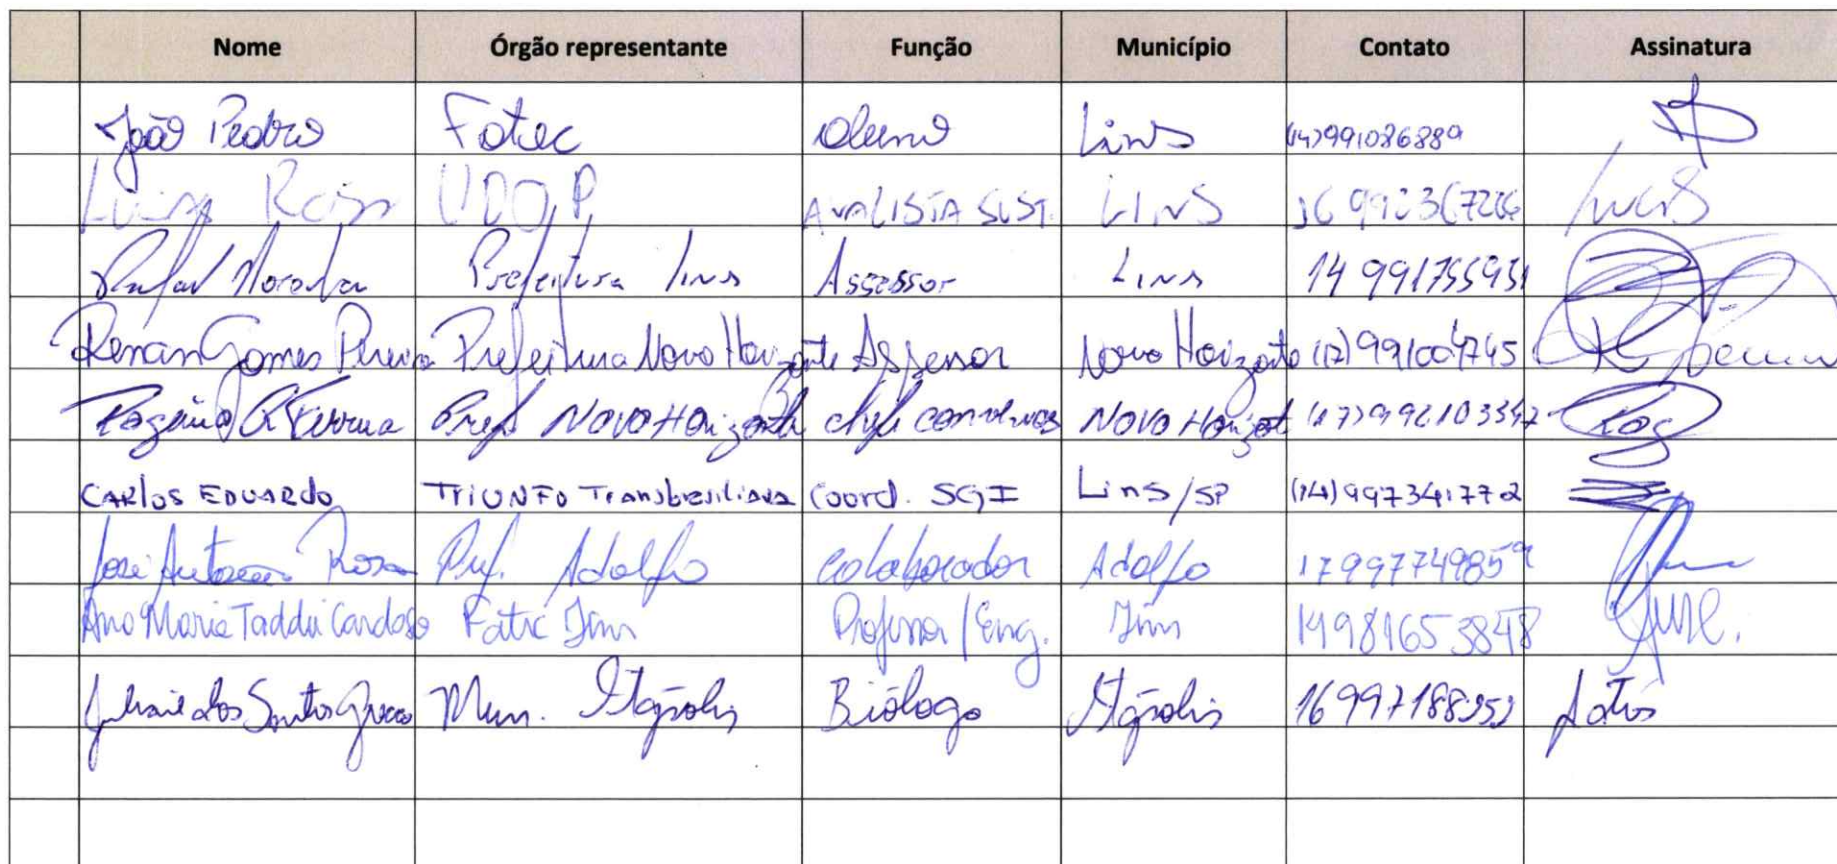 Nome Órgão representante Função Município Contato Assinatura
João Pedro Fatec aluno Lins (14)991086889
Luisa UDOP ANALISTA SUST. LINS 16 992367266
Rafael Prefeitura Lins Assessor Lins 14 991755931
Renan Gomes Pereira Prefeitura Novo Horizonte Assessor Novo Horizonte (17)991004745
Pref Novo Horizonte chefe convenios Novo Horizont (17)992103347 Rog
CARLOS EDUARDO TRIUNFO Transbrasiliana Coord. SGI Lins/SP (14)997341772
José Antonio Rosa Pref. Adolfo Colaborador Adolfo 17997749859
Ana Maria Taddei Cardoso Fatec Lins Professora/Eng. Lins 14981653848
dos Santos Mun. Itápolis Biólogo Itápolis 16997188353